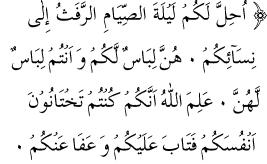 ﴿ اُحِلَّ لَكُمْ لَيْلَةَ الصِّيَامِ الرَّفَثُ اِلٰى
نِسَآئِكُمْ ۰ هُنَّ لِبَاسٌ لَّكُمْ وَ اَنْتُمْ لِبَاسٌ
لَّهُنَّ ۰ عَلِمَ اللّٰهُ اَنَّكُمْ كُنْتُمْ تَخْتَانُوْنَ
اَنْفُسَكُمْ فَتَابَ عَلَيْكُمْ وَ عَفَا عَنْكُمْ ۰